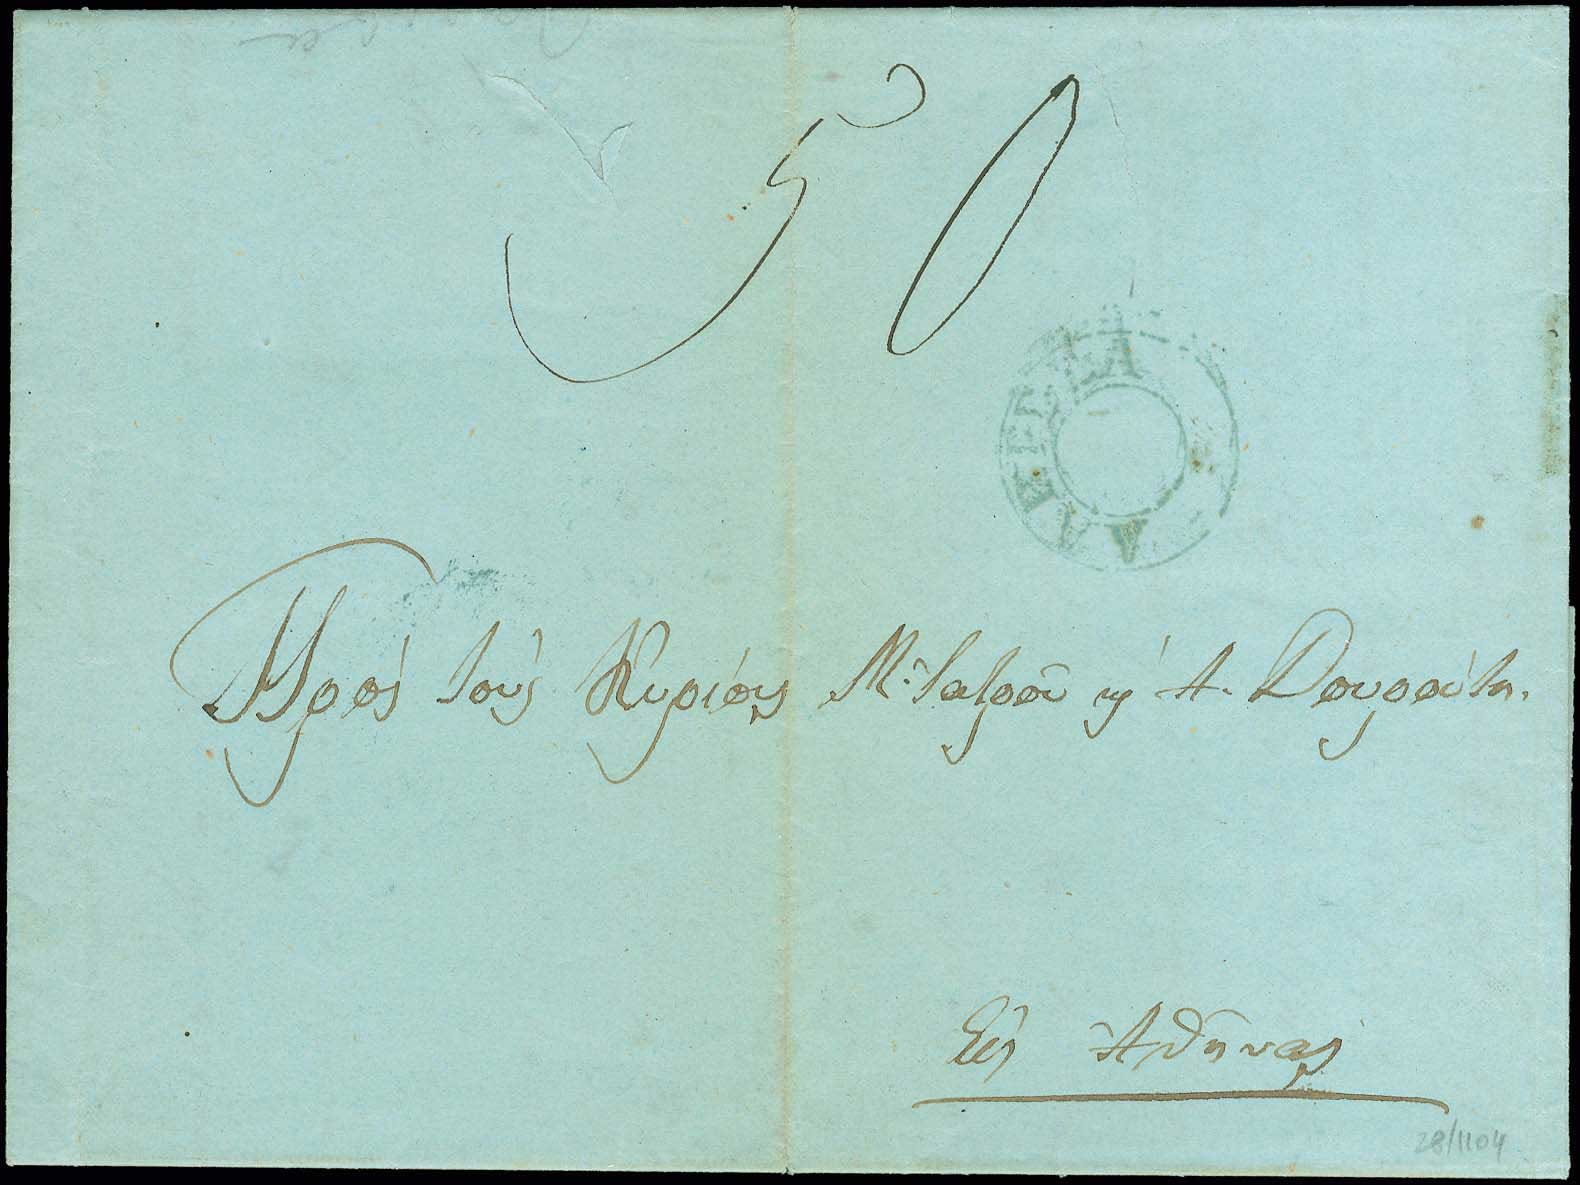 50
Πρὸς τοὺς Κυρίους Μ. Ἰατροῦ καὶ Α. Δουρούτη.
Εἰς Ἀθήνας
28/1104